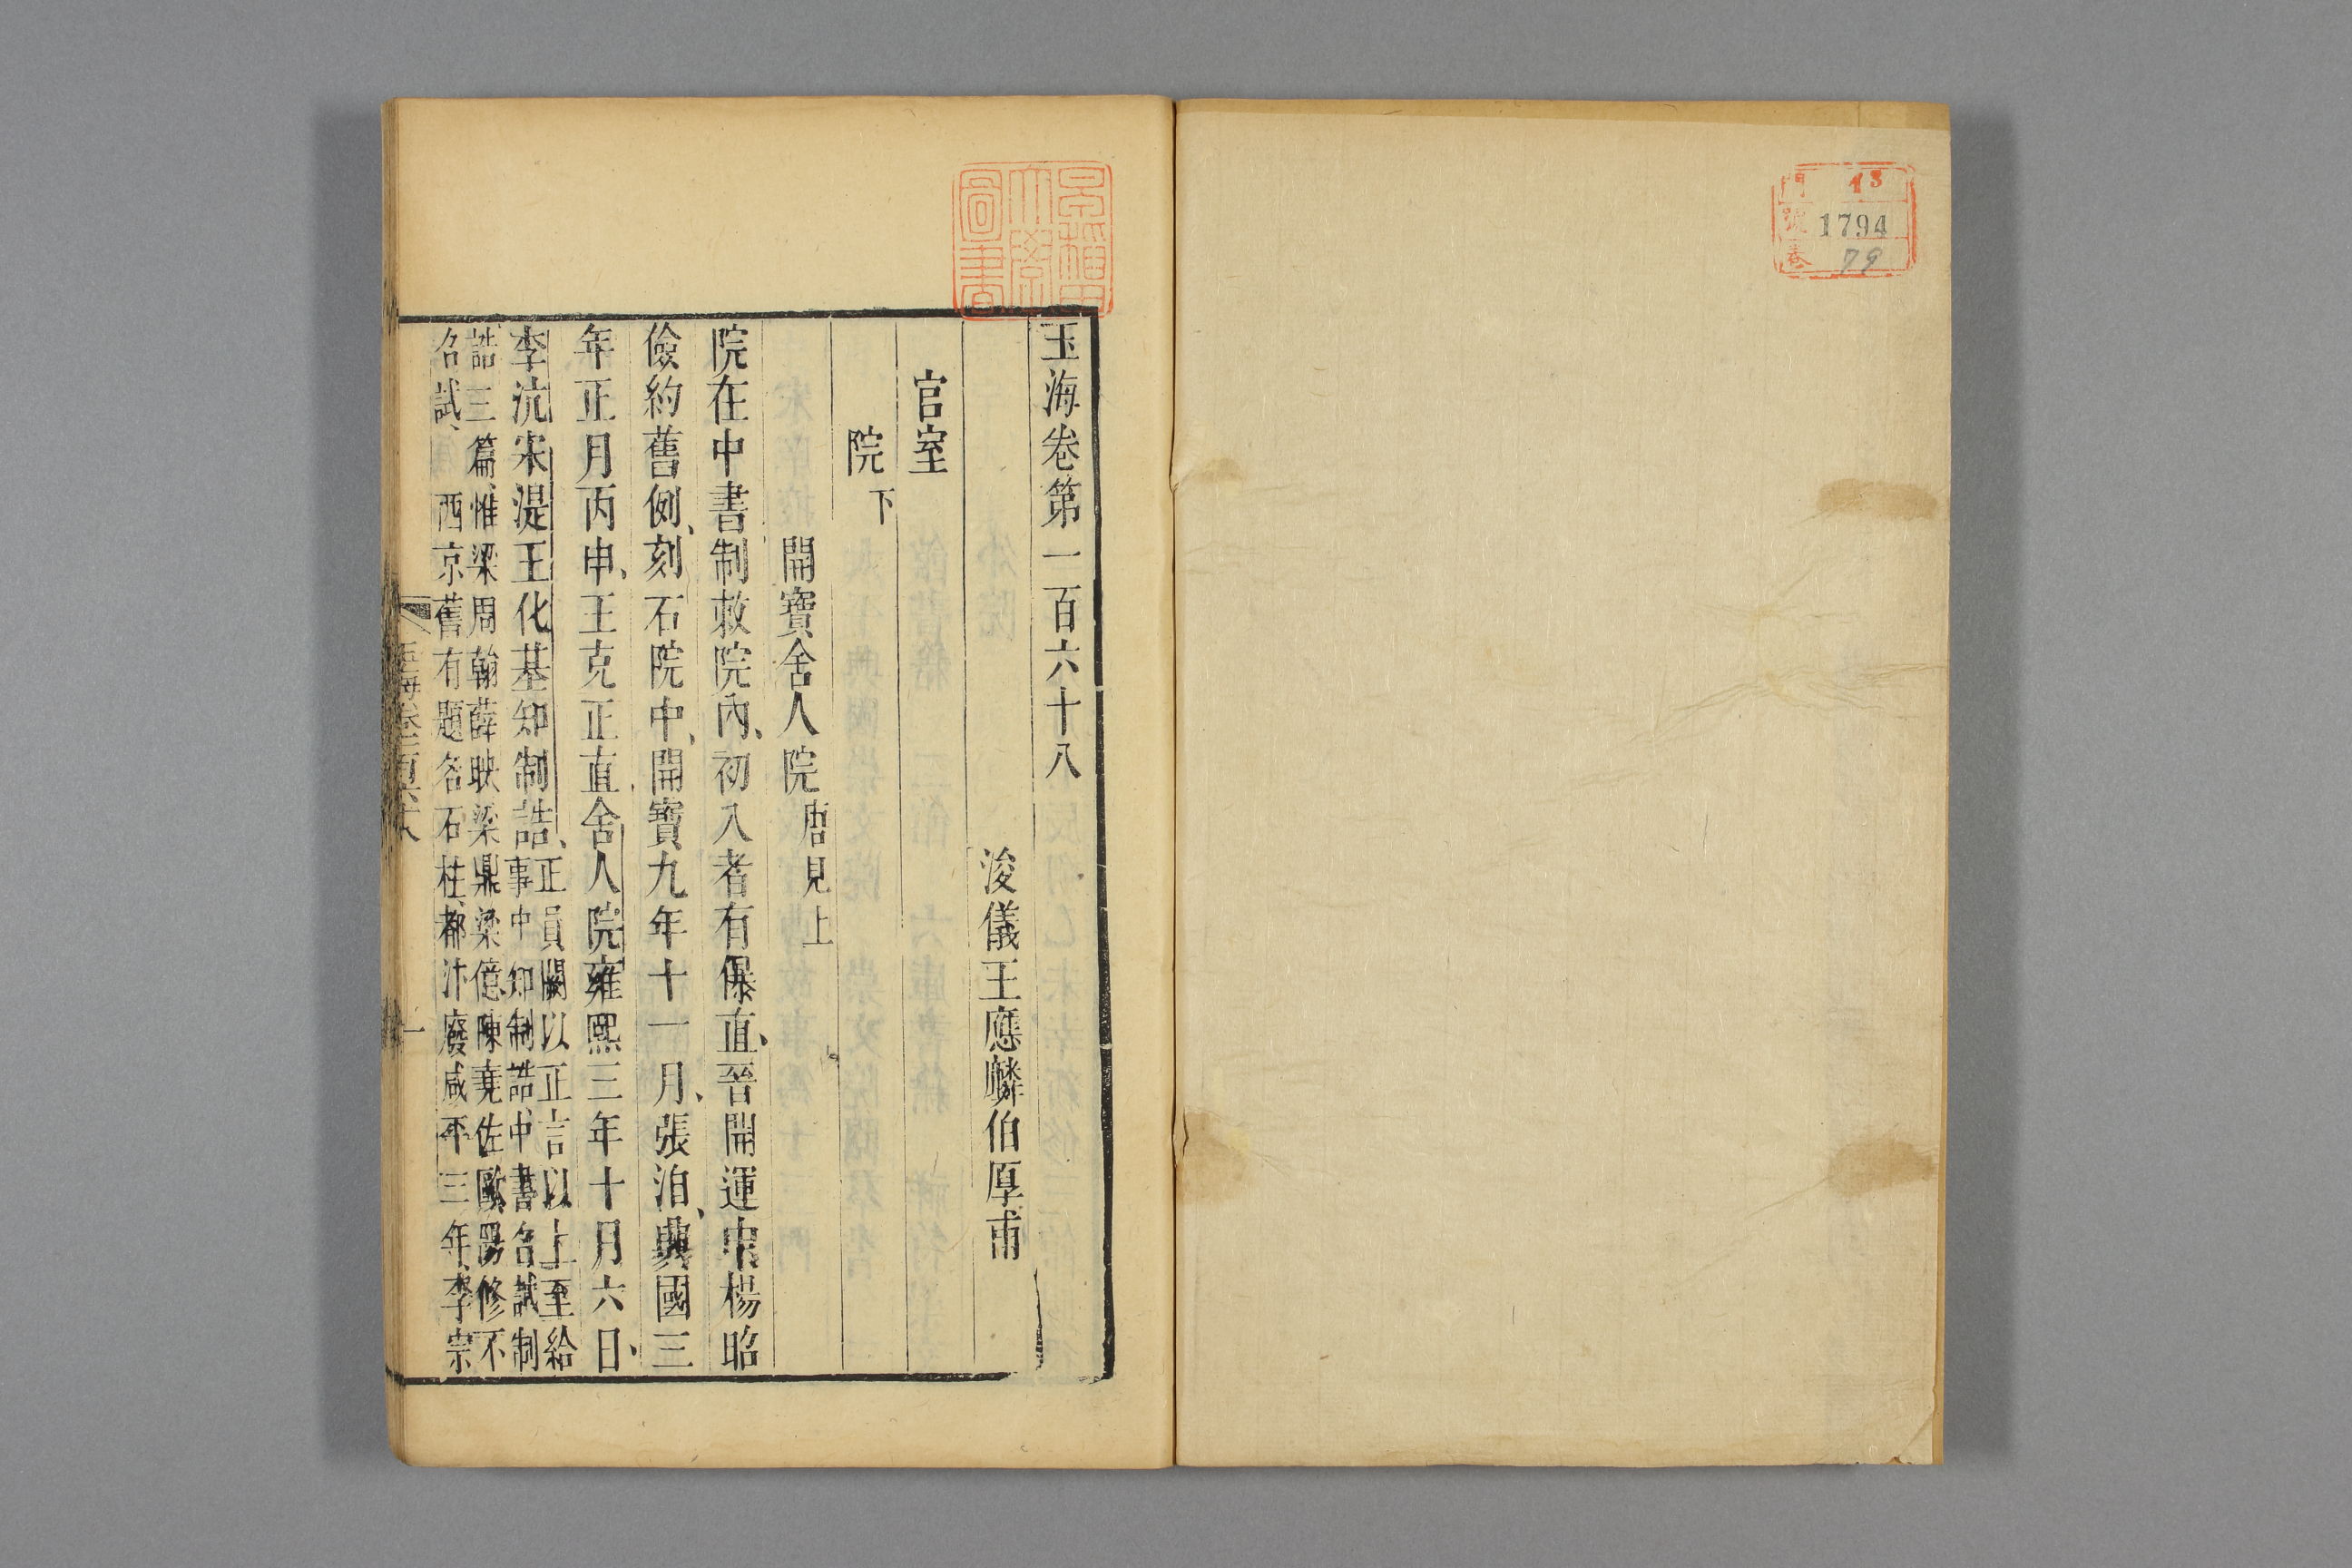 門 13
號 1794
卷 79
早稻田
大學
圖書
玉海卷第一百六十八
浚儀王應麟伯厚甫
官室
院下
開寶舍人院唐見上
院在中書制敕院內、初入者有儤直、晉開運中楊昭
儉約舊例、刻石院中、開寶九年十一月、張洎、典國三
年正月丙申、王克正直舍人院雍熙三年十月六日、
李沆宋湜王化基知制誥、正員闕以正言以上至給
事中知制誥、中書召試制
誥三篇、惟梁周翰薛映梁鼎梁億、陳堯佐歐陽修不
召試、西京舊有題名石柱、都汴廢咸平三年、李宗
玉海卷一百六十八
一